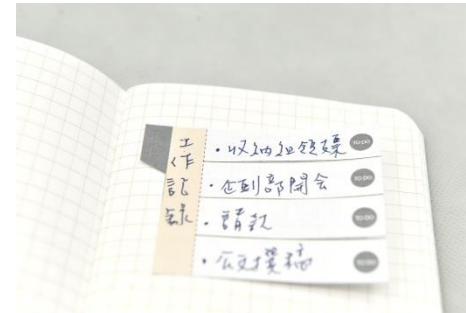 工作記錄
・收納組領票 TO-DO
・企劃部開会 TO-DO
・請款 TO-DO
・公文撰稿 TO-DO